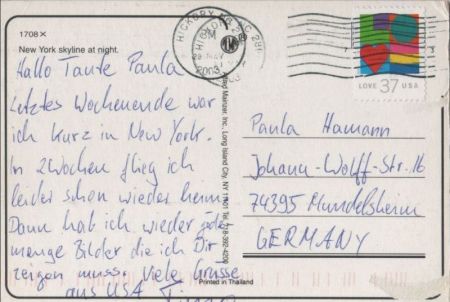 1708 X
New York skyline at night.
Hallo Tante Paula
Letztes Wochenende war
ich kurz in New York.
In 2 Wochen flieg ich
leider schon wieder heim.
Dann hab ich wieder jede
menge Bilder die ich Dir
zeigen muss. Viele Grüsse
aus USA
Alfred Mainzer, Inc., Long Island City, NY 11101 Tel. 718-392-4200
Printed in Thailand
HICKORY NC 281
PM
2003
LOVE 37 USA
Paula Hamann
Johann-Wolff-Str. 16
74395 Mundelsheim
GERMANY